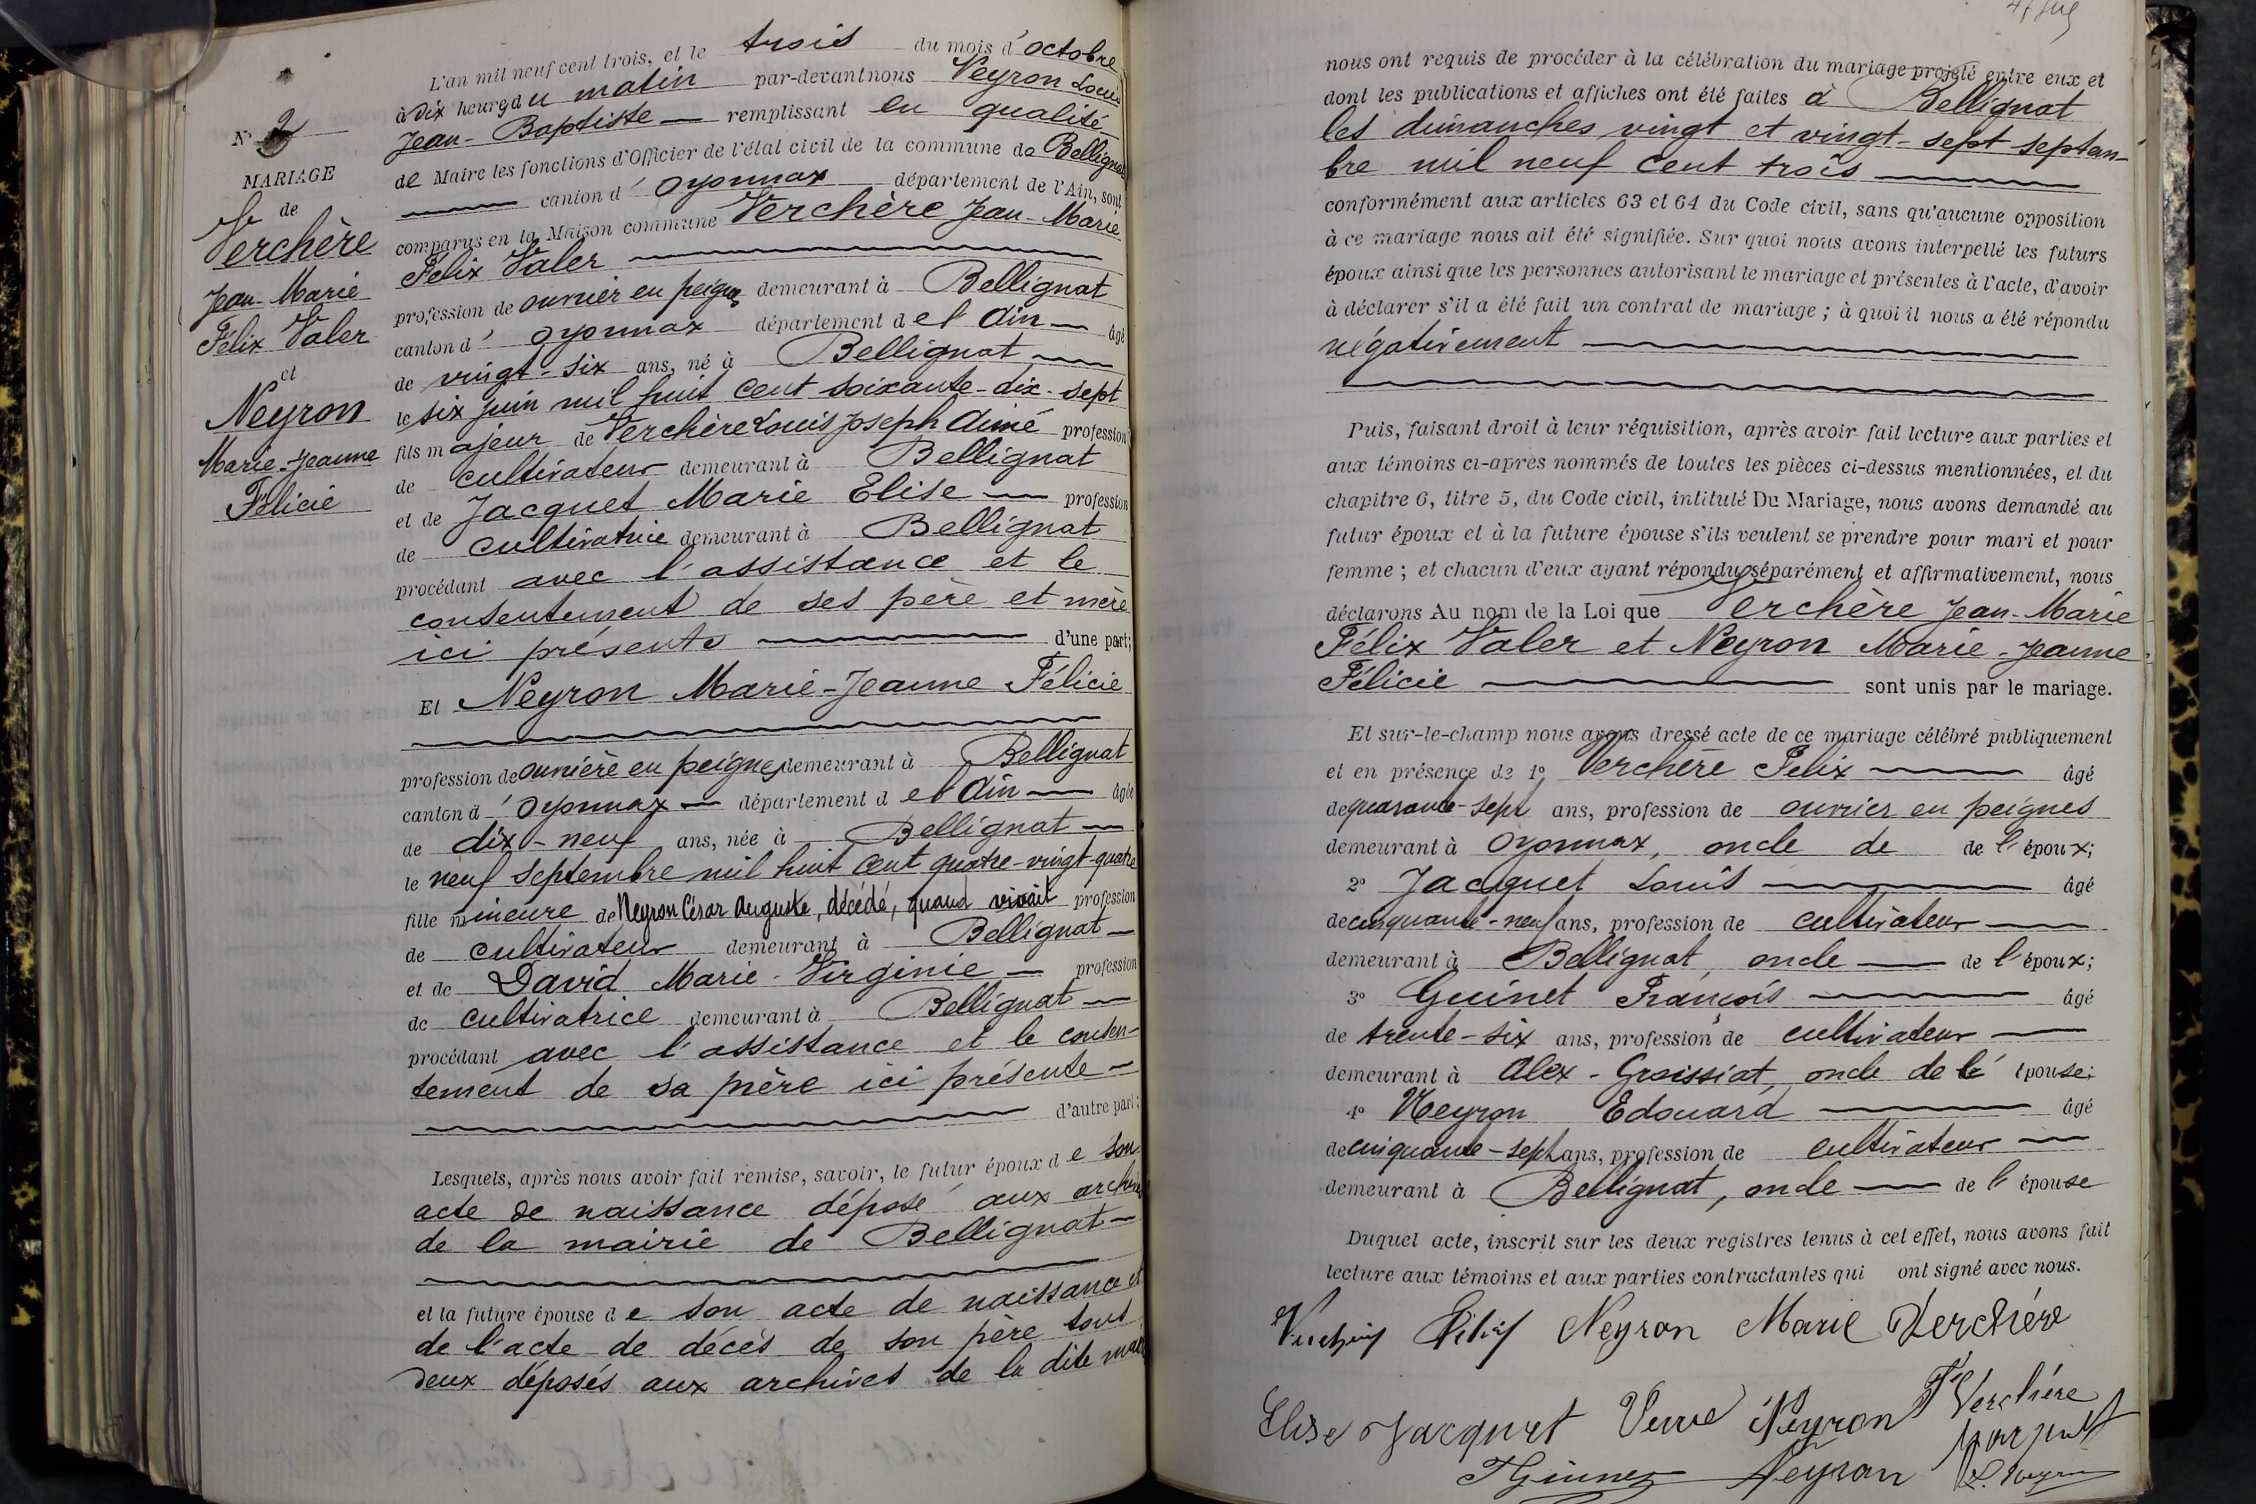 N° 2
MARIAGE
de
Verchère
Jean-Marie
Félix Valer
et
Neyron
Marie-Jeanne
Félicie
L'an mil neuf cent trois, et le trois du mois d'octobre
à dix heures du matin par-devant nous Veyron Louis
Jean-Baptiste remplissant en qualité
de Maire les fonctions d'Officier de l'état civil de la commune de Bellignat
canton d'Oyonnax département de l'Ain, sont
comparus en la Maison commune Verchère Jean-Marie
Félix Valer
profession de ouvrier en peignes demeurant à Bellignat
canton d'Oyonnax département de l'Ain âgé
de vingt-six ans, né à Bellignat
le six juin mil huit cent soixante-dix-sept
fils majeur de Verchère Louis Joseph Aimé profession
de cultivateur demeurant à Bellignat
et de Jacquet Marie Elise profession
de cultivatrice demeurant à Bellignat
procédant avec l'assistance et le
consentement de ses père et mère
ici présents d'une part;
Et Neyron Marie-Jeanne Félicie
profession de ouvrière en peignes demeurant à Bellignat
canton d'Oyonnax département de l'Ain âgée
de dix-neuf ans, née à Bellignat
le neuf septembre mil huit cent quatre-vingt-quatre
fille mineure de Neyron César Auguste, décédé, quand vivait profession
de cultivateur demeurant à Bellignat
et de David Marie-Virginie profession
de cultivatrice demeurant à Bellignat
procédant avec l'assistance et le consen-
tement de sa mère ici présente
d'autre part;
Lesquels, après nous avoir fait remise, savoir, le futur époux de son
acte de naissance déposé aux archives
de la mairie de Bellignat
et la future épouse de son acte de naissance et
de l'acte de décès de son père tous
deux déposés aux archives de la dite
nous ont requis de procéder à la célébration du mariage projeté entre eux et
dont les publications et affiches ont été faites à Bellignat
les dimanches vingt et vingt-sept septem-
bre mil neuf cent trois
conformément aux articles 63 et 64 du Code civil, sans qu'aucune opposition
à ce mariage nous ait été signifiée. Sur quoi nous avons interpellé les futurs
époux ainsi que les personnes autorisant le mariage et présentes à l'acte, d'avoir
à déclarer s'il a été fait un contrat de mariage; à quoi il nous a été répondu
négativement
Puis, faisant droit à leur réquisition, après avoir fait lecture aux parties et
aux témoins ci-après nommés de toutes les pièces ci-dessus mentionnées, et du
chapitre 6, titre 5, du Code civil, intitulé Du Mariage, nous avons demandé au
futur époux et à la future épouse s'ils veulent se prendre pour mari et pour
femme; et chacun d'eux ayant répondu séparément et affirmativement, nous
déclarons Au nom de la Loi que Verchère Jean-Marie
Félix Valer et Neyron Marie-Jeanne
Félicie sont unis par le mariage.
Et sur-le-champ nous avons dressé acte de ce mariage célébré publiquement
et en présence de 1° Verchère Félix âgé
de quarante-sept ans, profession de ouvrier en peignes
demeurant à Oyonnax, oncle de de l'époux;
2° Jacquet Louis âgé
de cinquante-neuf ans, profession de cultivateur
demeurant à Bellignat, oncle de l'époux;
3° Guinet François âgé
de trente-six ans, profession de cultivateur
demeurant à Alex-Groissiat, oncle de l'épouse;
4° Neyron Edouard âgé
de cinquante-sept ans, profession de cultivateur
demeurant à Bellignat, oncle de l'épouse
Duquel acte, inscrit sur les deux registres tenus à cet effet, nous avons fait
lecture aux témoins et aux parties contractantes qui ont signé avec nous.
Neyron Marie Verchère
Elise Jacquet Veuve Neyron Verchère
Neyron